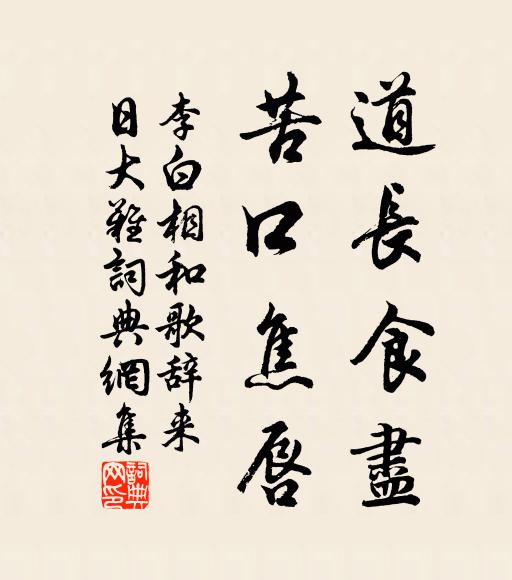 道長食盡
苦口焦唇
李白相和歌辞来
日大難詞典網集
詞典网印